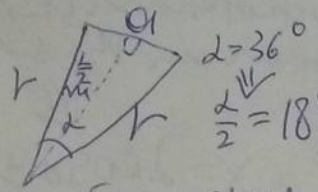 a
r
α/2
α
r
α = 36°
⇓
α/2 = 18